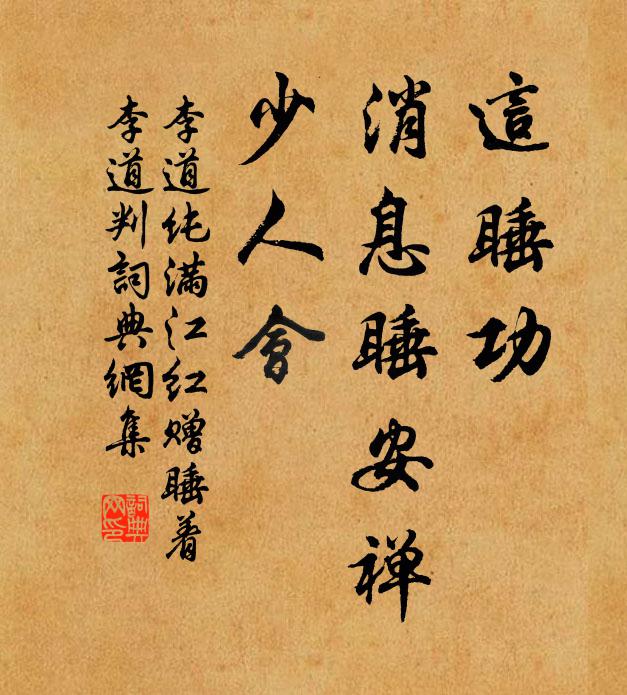 這睡功
消息睡安禅
少人會
李道纯满江红赠睡着
李道判詞典網集
詞典
网印